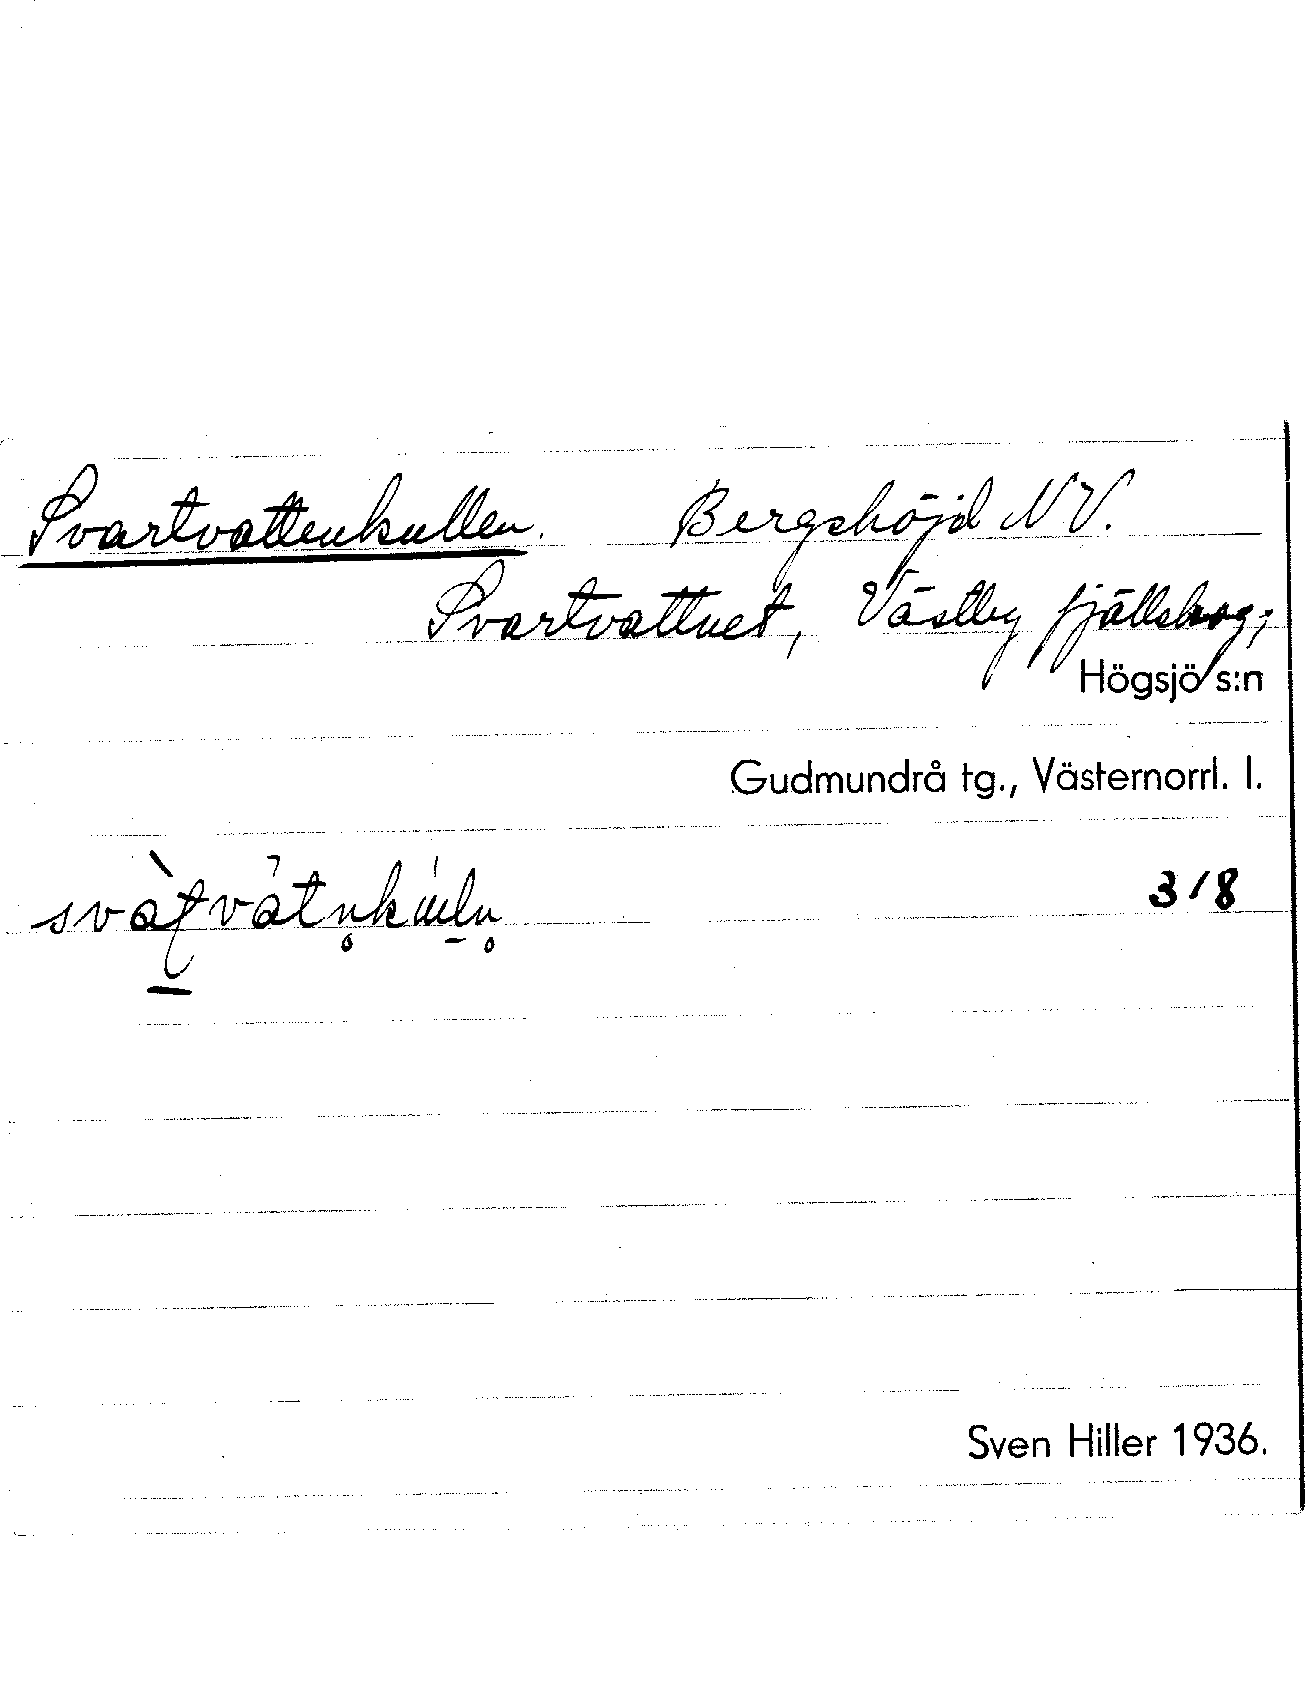 Svartvattenkullen. Bergshöjd NV.
Svartvattnet, Västby fjällskog,
Högsjö s:n
Gudmundrå tg., Västernorrl. l.
3/8
Sven Hiller 1936.